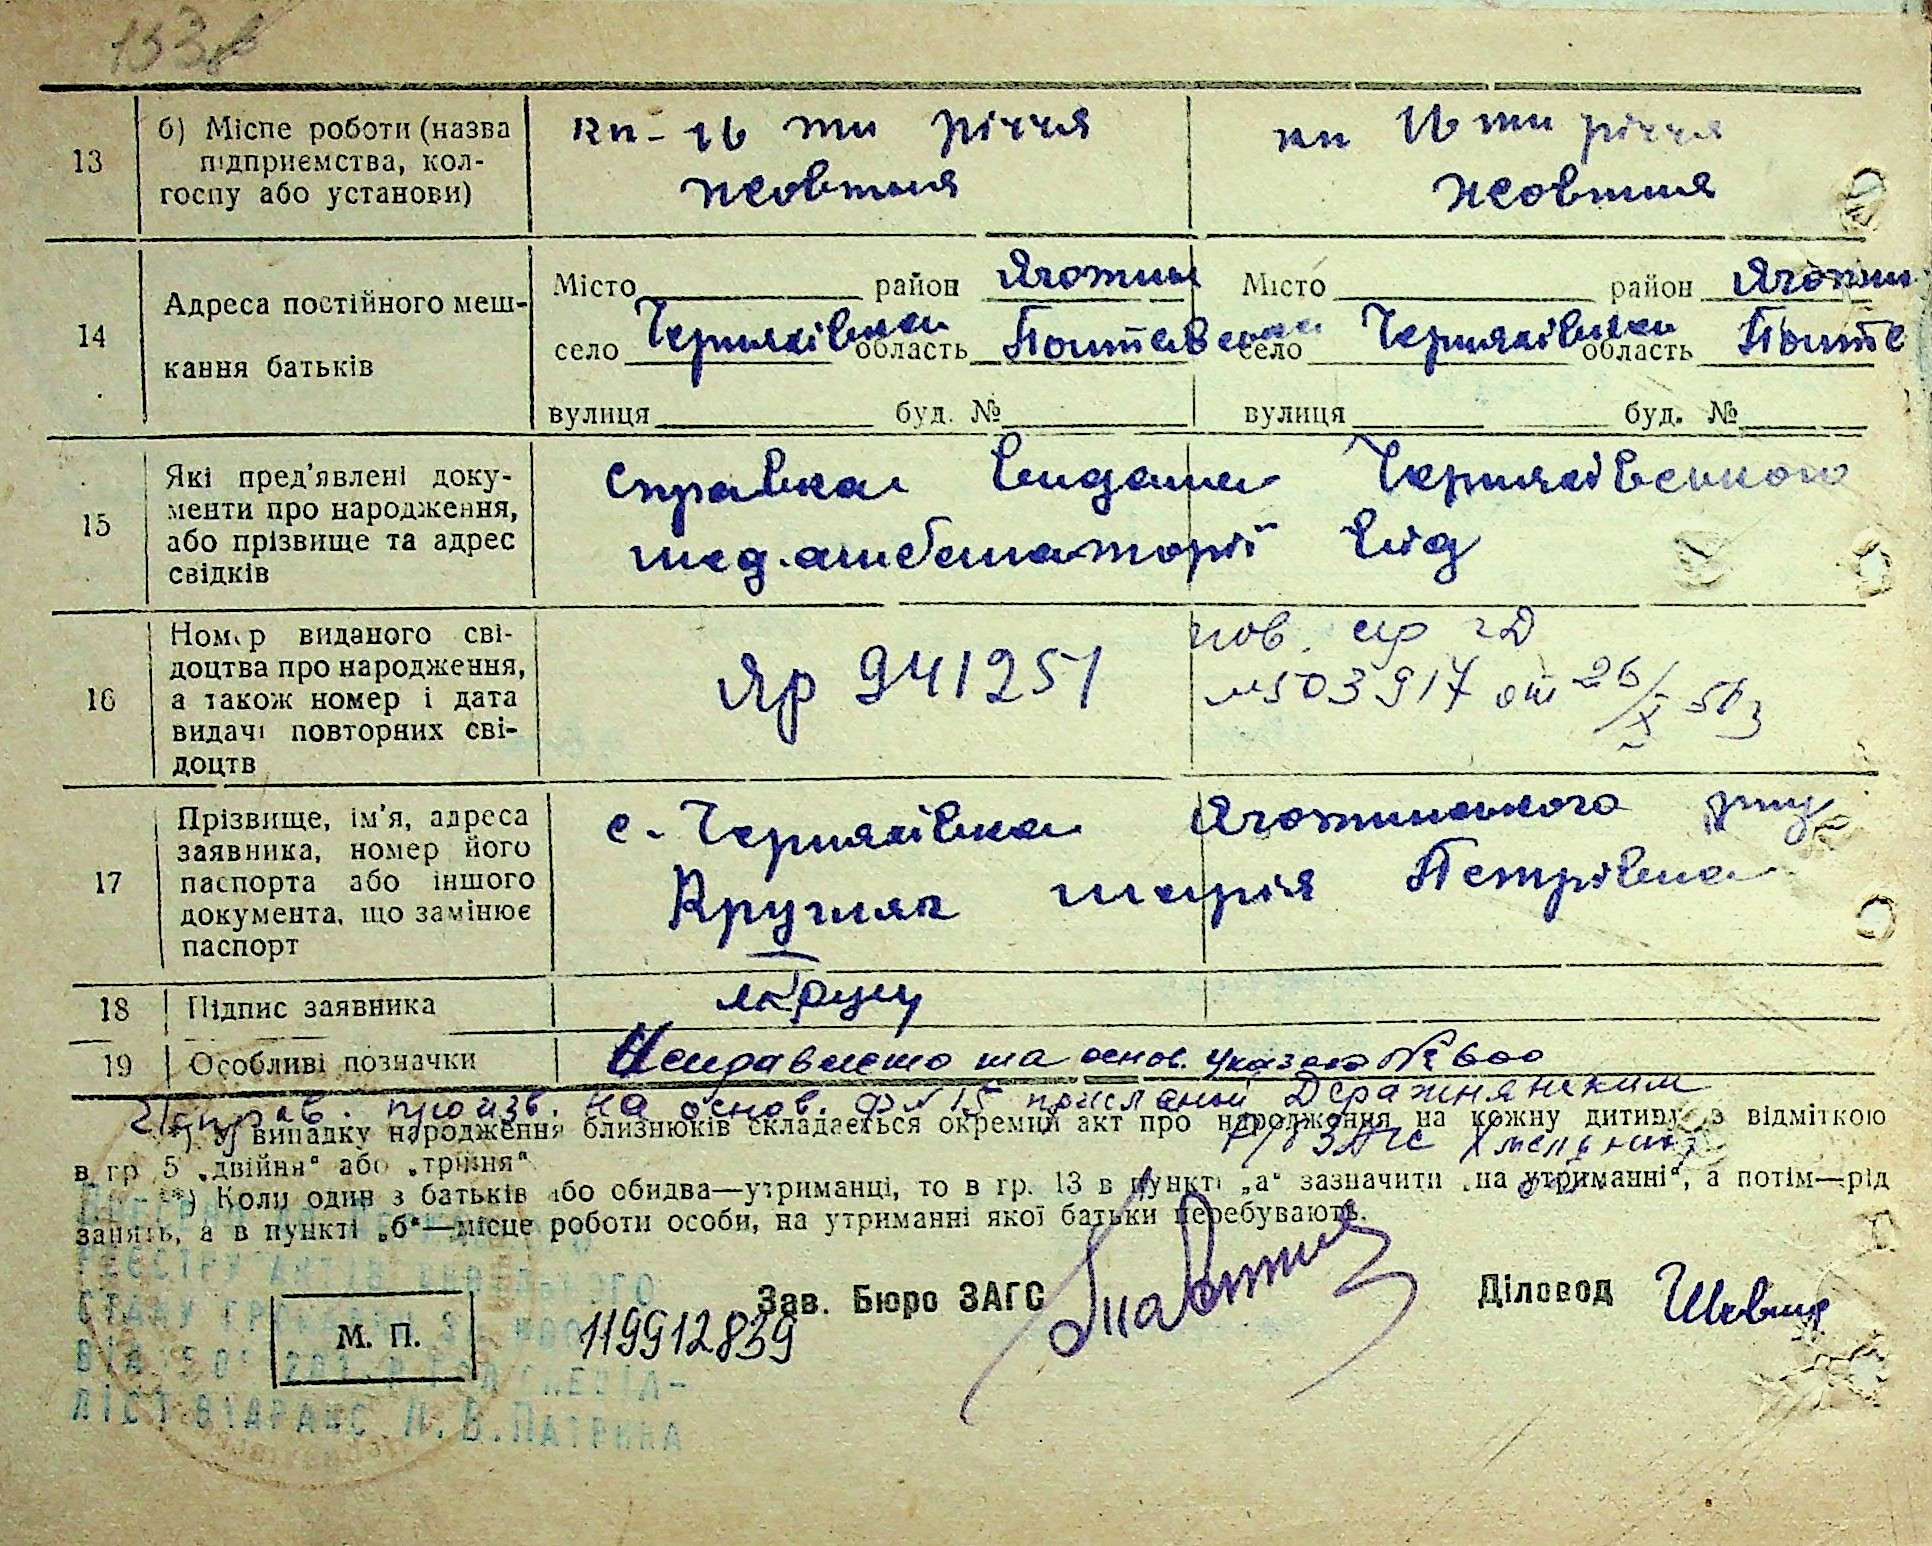 133
13
б) Місце роботи (назва
підприємства, кол-
госпу або установи)
кп- 16 ти річчя
жовтня
кп 16 ти річчя
жовтня
14
Адреса постійного меш-
кання батьків
Місто район Яготин
село Черняхівка область Полтавська
вулиця буд. №
Місто район Яготин
село Черняхівка область Полтв
вулиця буд. №
15
Які пред'явлені доку-
менти про народження,
або прізвище та адрес
свідків
Справка видана Черняхівською
мед. амбулаторії від
16
Номер виданого сві-
доцтва про народження,
а також номер і дата
видачі повторних сві-
доцтв
Яр 941251
пов. сер
№503917 от 26/X 56
17
Прізвище, ім'я, адреса
заявника, номер його
паспорта або іншого
документа, що замінює
паспорт
с. Черняхівка Яготинського р-ну
Кругляк Марія Петрівна
18
Підпис заявника
19
Особливі позначки
на основ. указаю № 600
Исправ. произв. на основ. ф №15 присланой Деражнянским
р/б ЗАГС Хмельниц
*) У випадку народження близнюків складається окремий акт про народження на кожну дитину з відміткою
в гр 5 „двійня“ або „трійня“
**) Коли один з батьків або обидва—утриманці, то в гр. 13 в пункті „а“ зазначити „на утриманні“, а потім—рід
занять, а в пункті „б“—місце роботи особи, на утриманні якої батьки перебувають.
РЕЄСТРУ АКТІВ ЦИВІЛЬНОГО
СТАНУ ГРОМАДЯН ЗА №00
ЛІСТ ВІДРАЦС Н.В.ПАТРИНА
М. П.
119912839
Зав. Бюро ЗАГС
Діловод